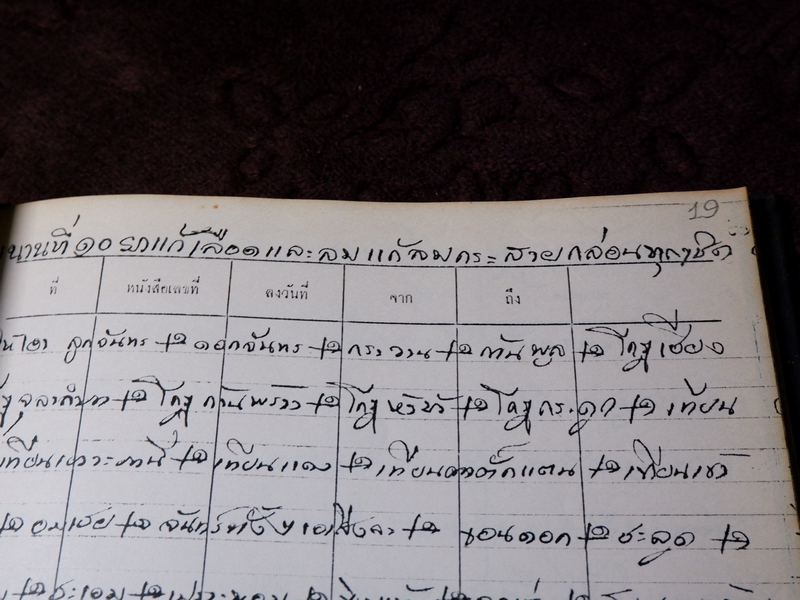 19
ขนานที่ ๑๐ ยาแก้เลือดและลม แก้ลมกระสายกล่อนทุกชนิด
ที่ หนังสือเลขที่ ลงวันที่ จาก ถึง
ให้เอา ลูกจันทร +๑ ดอกจันทร +๑ กระวาน +๑ กานพลู +๑ โกฎเชียง
จุลาลำพา +๑ โกฎก้านพร้าว +๑ โกฎหัวบัว +๑ โกฎกระดูก +๑ เทียน
+๑ เทียนแดง +๑ เทียนตาตั๊กแตน +๑ เทียนขาว
+๑ อบเชย +๑ จันทร์ทั้ง ๒ เอาสิ่งละ +๑ ขอนดอก +๑ ชะลูด +๑
+๑ ชะเอม +๑